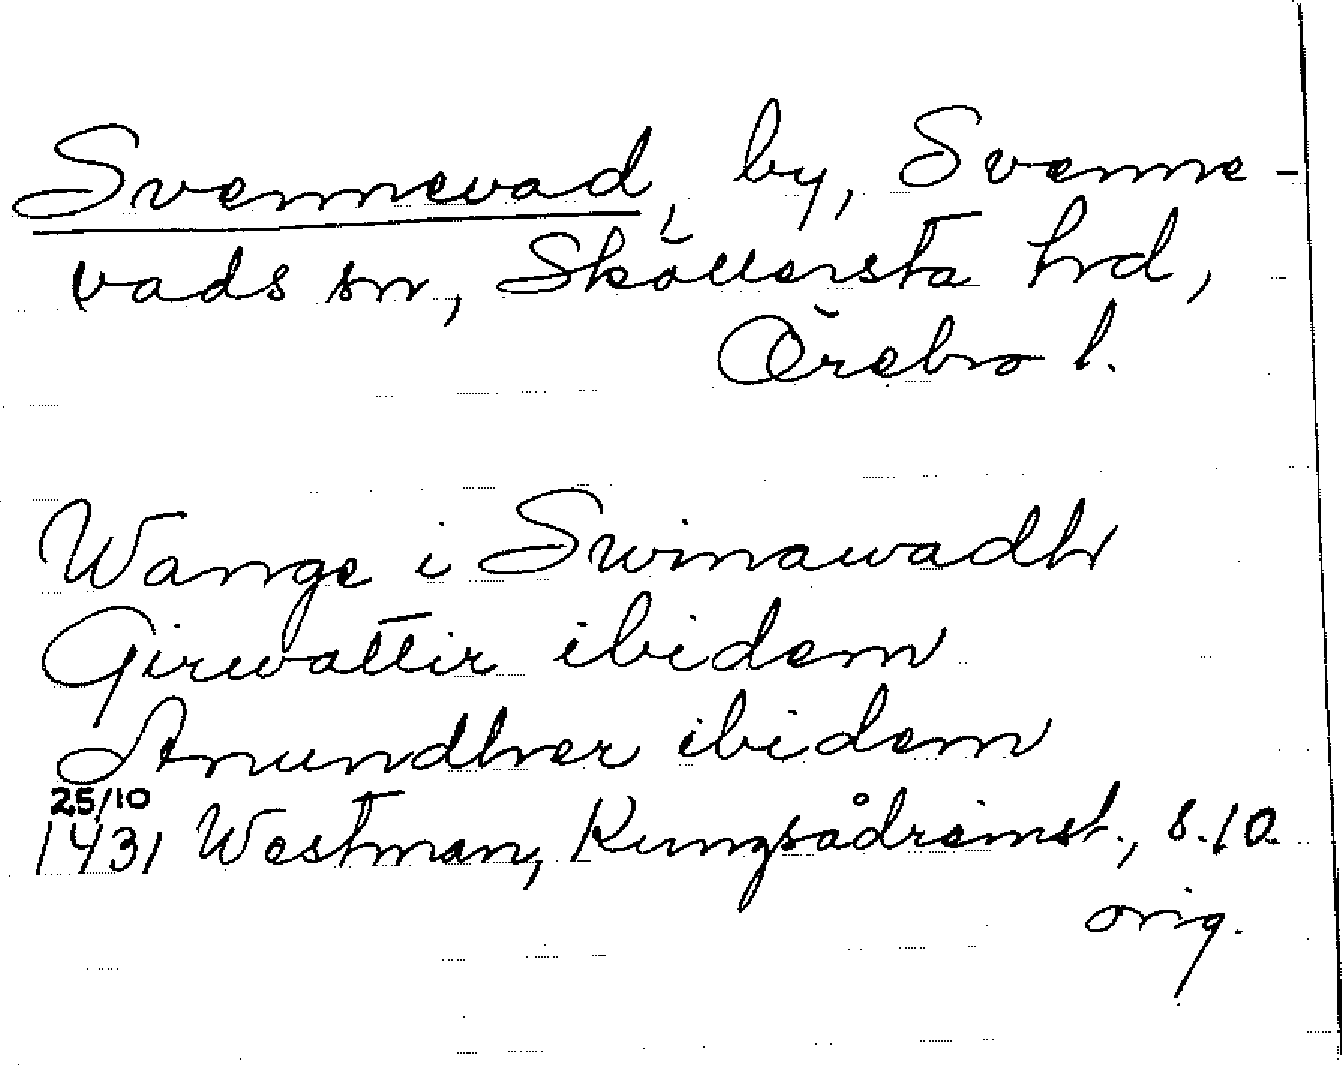 Svennevad, by, Svenne-
vads sn, Sköllersta hrd,
Örebro l.
Wange i Swinawadh
Girwattir ibidem
Anundher ibidem
25/10
1431 Westman, Kungsådreinst., s. 10.
orig.